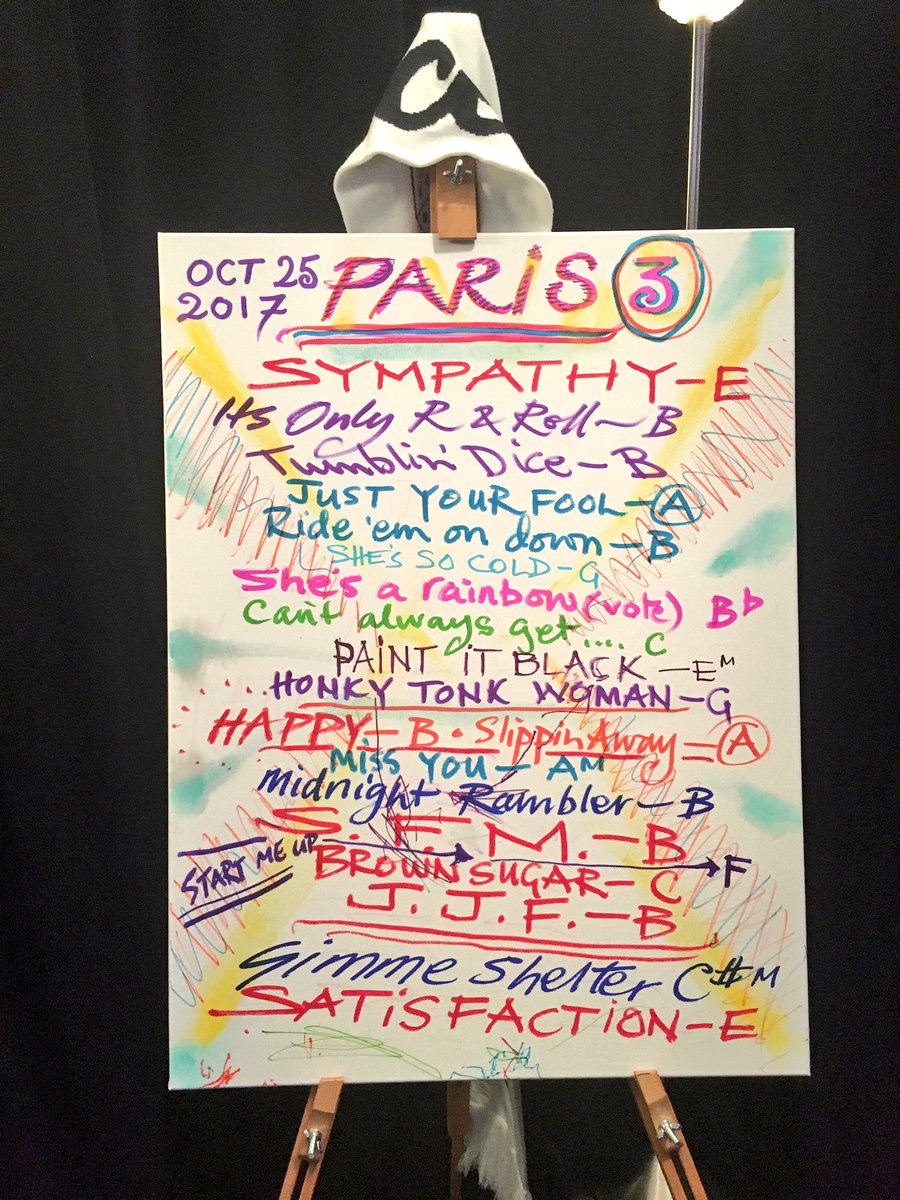 OCT 25 PARIS 3
2017
SYMPATHY-E
Its Only R & Roll-B
Tumblin' Dice-B
JUST YOUR FOOL-A
Ride 'em on down-B
SHE'S SO COLD-G
She's a rainbow (vote) Bb
Can't always get.... C
PAINT IT BLACK-EM
HONKY TONK WOMAN-G
HAPPY-B • Slippin Away-A
MISS YOU-AM
Midnight Rambler-B
S. F. M.-B
START ME UP F
BROWN SUGAR-C
J. J. F.-B
Gimme Shelter C#M
SATISFACTION-E